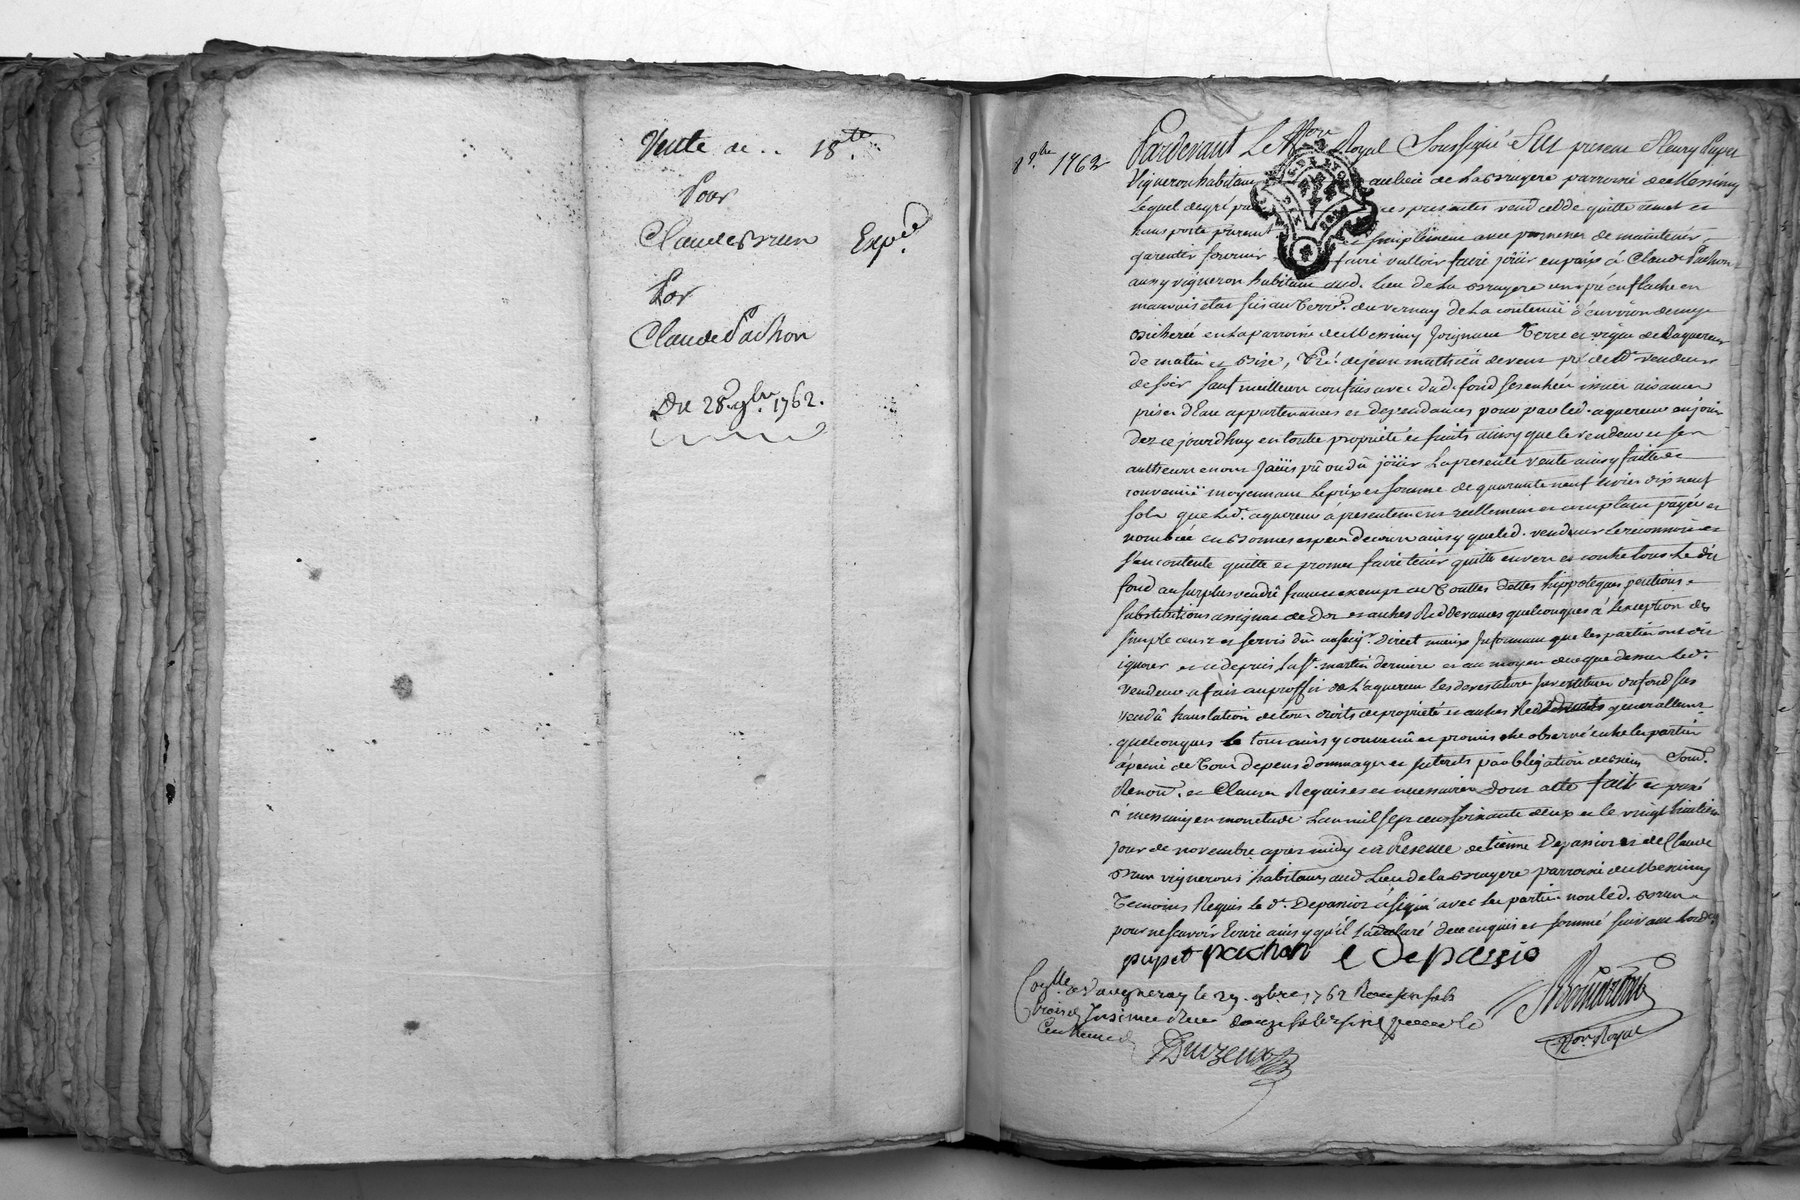 Vente de .. 18.te
Pour
Claude Brun Exp.ée
Par
Claude Pachon
Du 28. 9bre. 1762.
8bre 1762
Pardevant Le No.re Royal Soussigné Fut present Fleury Pupet
Vigneron habitant au lieu de La Bruyere parroisse de Messimy
Lequel de gré ces presentes vend cede quitte remet et
transporte purement et simplement avec promesse de maintenir
garentir fournir faire valloir faire joüir en paix à Claude Pachon
aussy vigneron habitant aud. Lieu de La Bruyere un pré en flache en
mauvais etat sis au Terr.e du vernay de La contenüe d'environ demye
bicherée en La parroisse de Messimy Joignant Terre et vigne de Laquereur
de matin et Bise, Pré de jean mathieu de vent pré de Ud. vendeur
de soir sauf meilleurs confins avec dud. fond ses entrées issües aisances
prises d'Eau appartenances et dependances pour par led. aquereur en joüir
dez ce jourdhuy en toutte proprieté et fruits ainsy que le vendeur et ses
autheurs en ont Joüis pû ou dû joüir La presente vente ainsy faitte et
convenüe moyennant Le prix et somme de quarante neuf Livres dix neuf
sols que Led. aquereur à presentement reellement et comptant payée et
nombrée en Bonnes especes de cours ainsy que led. vendeur Le reconnoit et
s'en contente quitte et promet faire tenir quitte envers et contre tous Le dit
fond au surplus vendû franc et exempt de Touttes dettes hippoteques pentions
substitutions assignat de Dot et autres Reddevances quelconques à Lexception du
simple cens et servis dû au seig.r direct mieux Informant que les parties ont dit
ignorer et ce depuis La S.t martin derniere et au moyen de ce que dessus Led.
vendeur a fait au proffit de L'aquereur les devestiture Investiture du fond sus
vendû translation de tous droits de proprieté et autres generallement
quelconques le tout ainsy convenû et promis etre observé entre les parties
à peine de Tous depens dommages et Interets par obligation de biens Soud.
Renon. et Clauses Requises et necessaires Dont acte fait et passé
à messimy en mon etude Lan mil sept cent soixante deux et le vingt huitieme
jour de novembre apres midy en Presence detienne Depassio et de Claude
Brun vignerons habitans aud. Lieu de la Bruyere parroisse de Messimy
Temoins Requis le d. Depassio à signé avec les parties non led. Brun
pour ne scavoir Ecrire ainsy qu'il l'a declaré de ce enquis et sommé suivant Lord.ce
pupet pachon e depassio
Con.lle à Vaugneray le 29. 9bre 1762 Reçu
No.re Royal